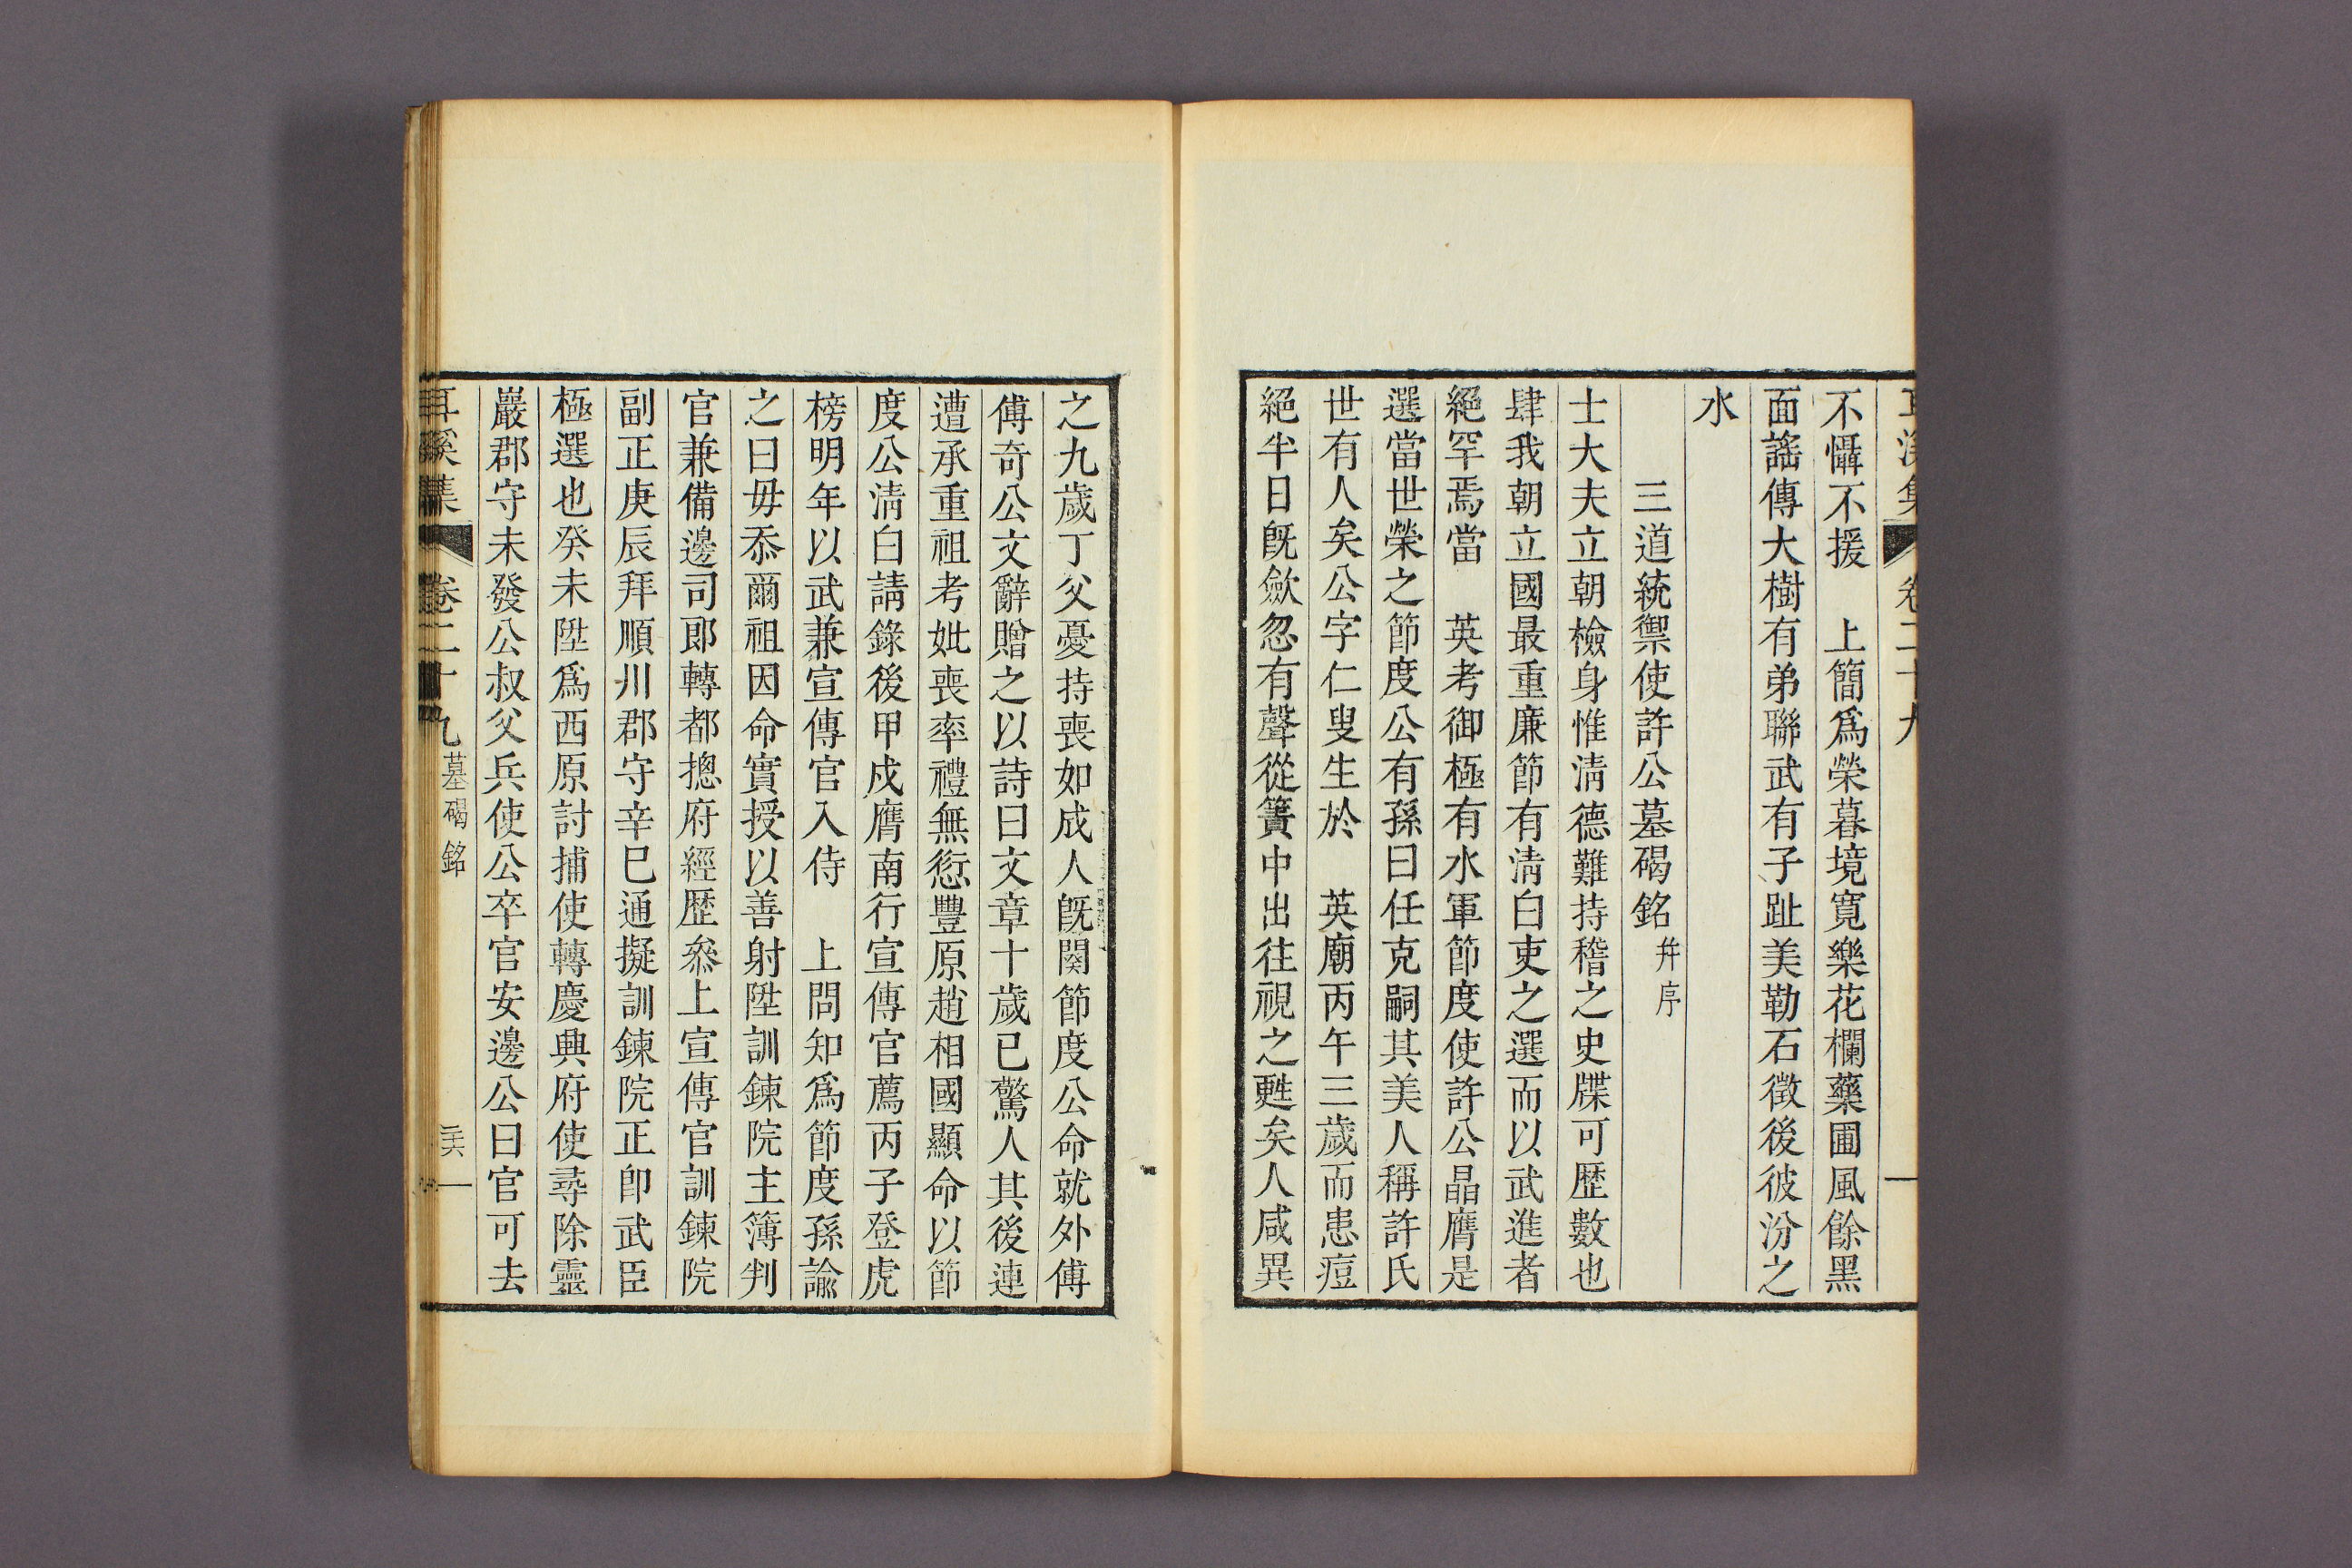 不懾不援　上簡爲榮暮境寬樂花欄藥圃風餘黑
面謠傳大樹有弟聯武有子趾美勒石徵後彼汾之
水
三道統禦使許公墓碣銘幷序
士大夫立朝檢身惟淸德難持稽之史牒可歷數也
肆我朝立國最重廉節有淸白吏之選而以武進者
絕罕焉當　英考御極有水軍節度使許公晶膺是
選當世榮之節度公有孫曰任克嗣其美人稱許氏
世有人矣公字仁叟生於　英廟丙午三歲而患痘
絕半日旣歛忽有聲從簀中出往視之甦矣人咸異
之九歲丁父憂持喪如成人旣闋節度公命就外傅
傅奇公文辭贈之以詩曰文章十歲已驚人其後連
遭承重祖考妣喪率禮無愆豐原趙相國顯命以節
度公淸白請錄後甲戌膺南行宣傳官薦丙子登虎
榜明年以武兼宣傳官入侍　上問知爲節度孫諭
之曰毋忝爾祖因命實授以善射陞訓鍊院主簿判
官兼備邊司郞轉都摠府經歷叅上宣傳官訓鍊院
副正庚辰拜順川郡守辛巳通擬訓鍊院正卽武臣
極選也癸未陞爲西原討捕使轉慶興府使尋除靈
巖郡守未發公叔父兵使公卒官安邊公曰官可去
耳溪集　卷二十九　墓碣銘　二六